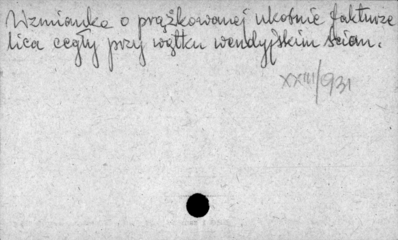 Wzmianka o prążkowanej ukośnie fakturze
lica cegły przy wątku wendyjskim ścian.
XXIII/931